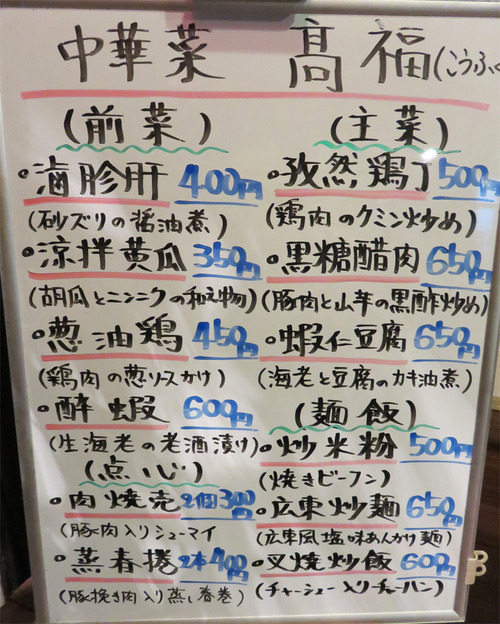 中華菜 高福(こうふく
(前菜)
・滷胗肝 400円
(砂ズリの醤油煮)
・涼拌黄瓜 350円
(胡瓜とニンニクの和え物)
・葱油鶏 450円
(鶏肉の葱ソースかけ)
・酔蝦 600円
(生海老の老酒漬け)
(点心)
・肉焼売 2個300円
(豚肉入りシューマイ)
・蒸春捲 2本400円
(豚挽き肉入り蒸し春巻)
(主菜)
・孜然鶏丁 500円
(鶏肉のクミン炒め)
・黒糖醋肉 650円
(豚肉と山芋の黒酢炒め)
・蝦仁豆腐 650円
(海老と豆腐のカキ油煮)
(麺飯)
・炒米粉 500円
(焼きビーフン)
・広東炒麺 650円
(広東風塩味あんかけ麺)
・叉焼炒飯 600円
(チャーシュー入りチャーハン)